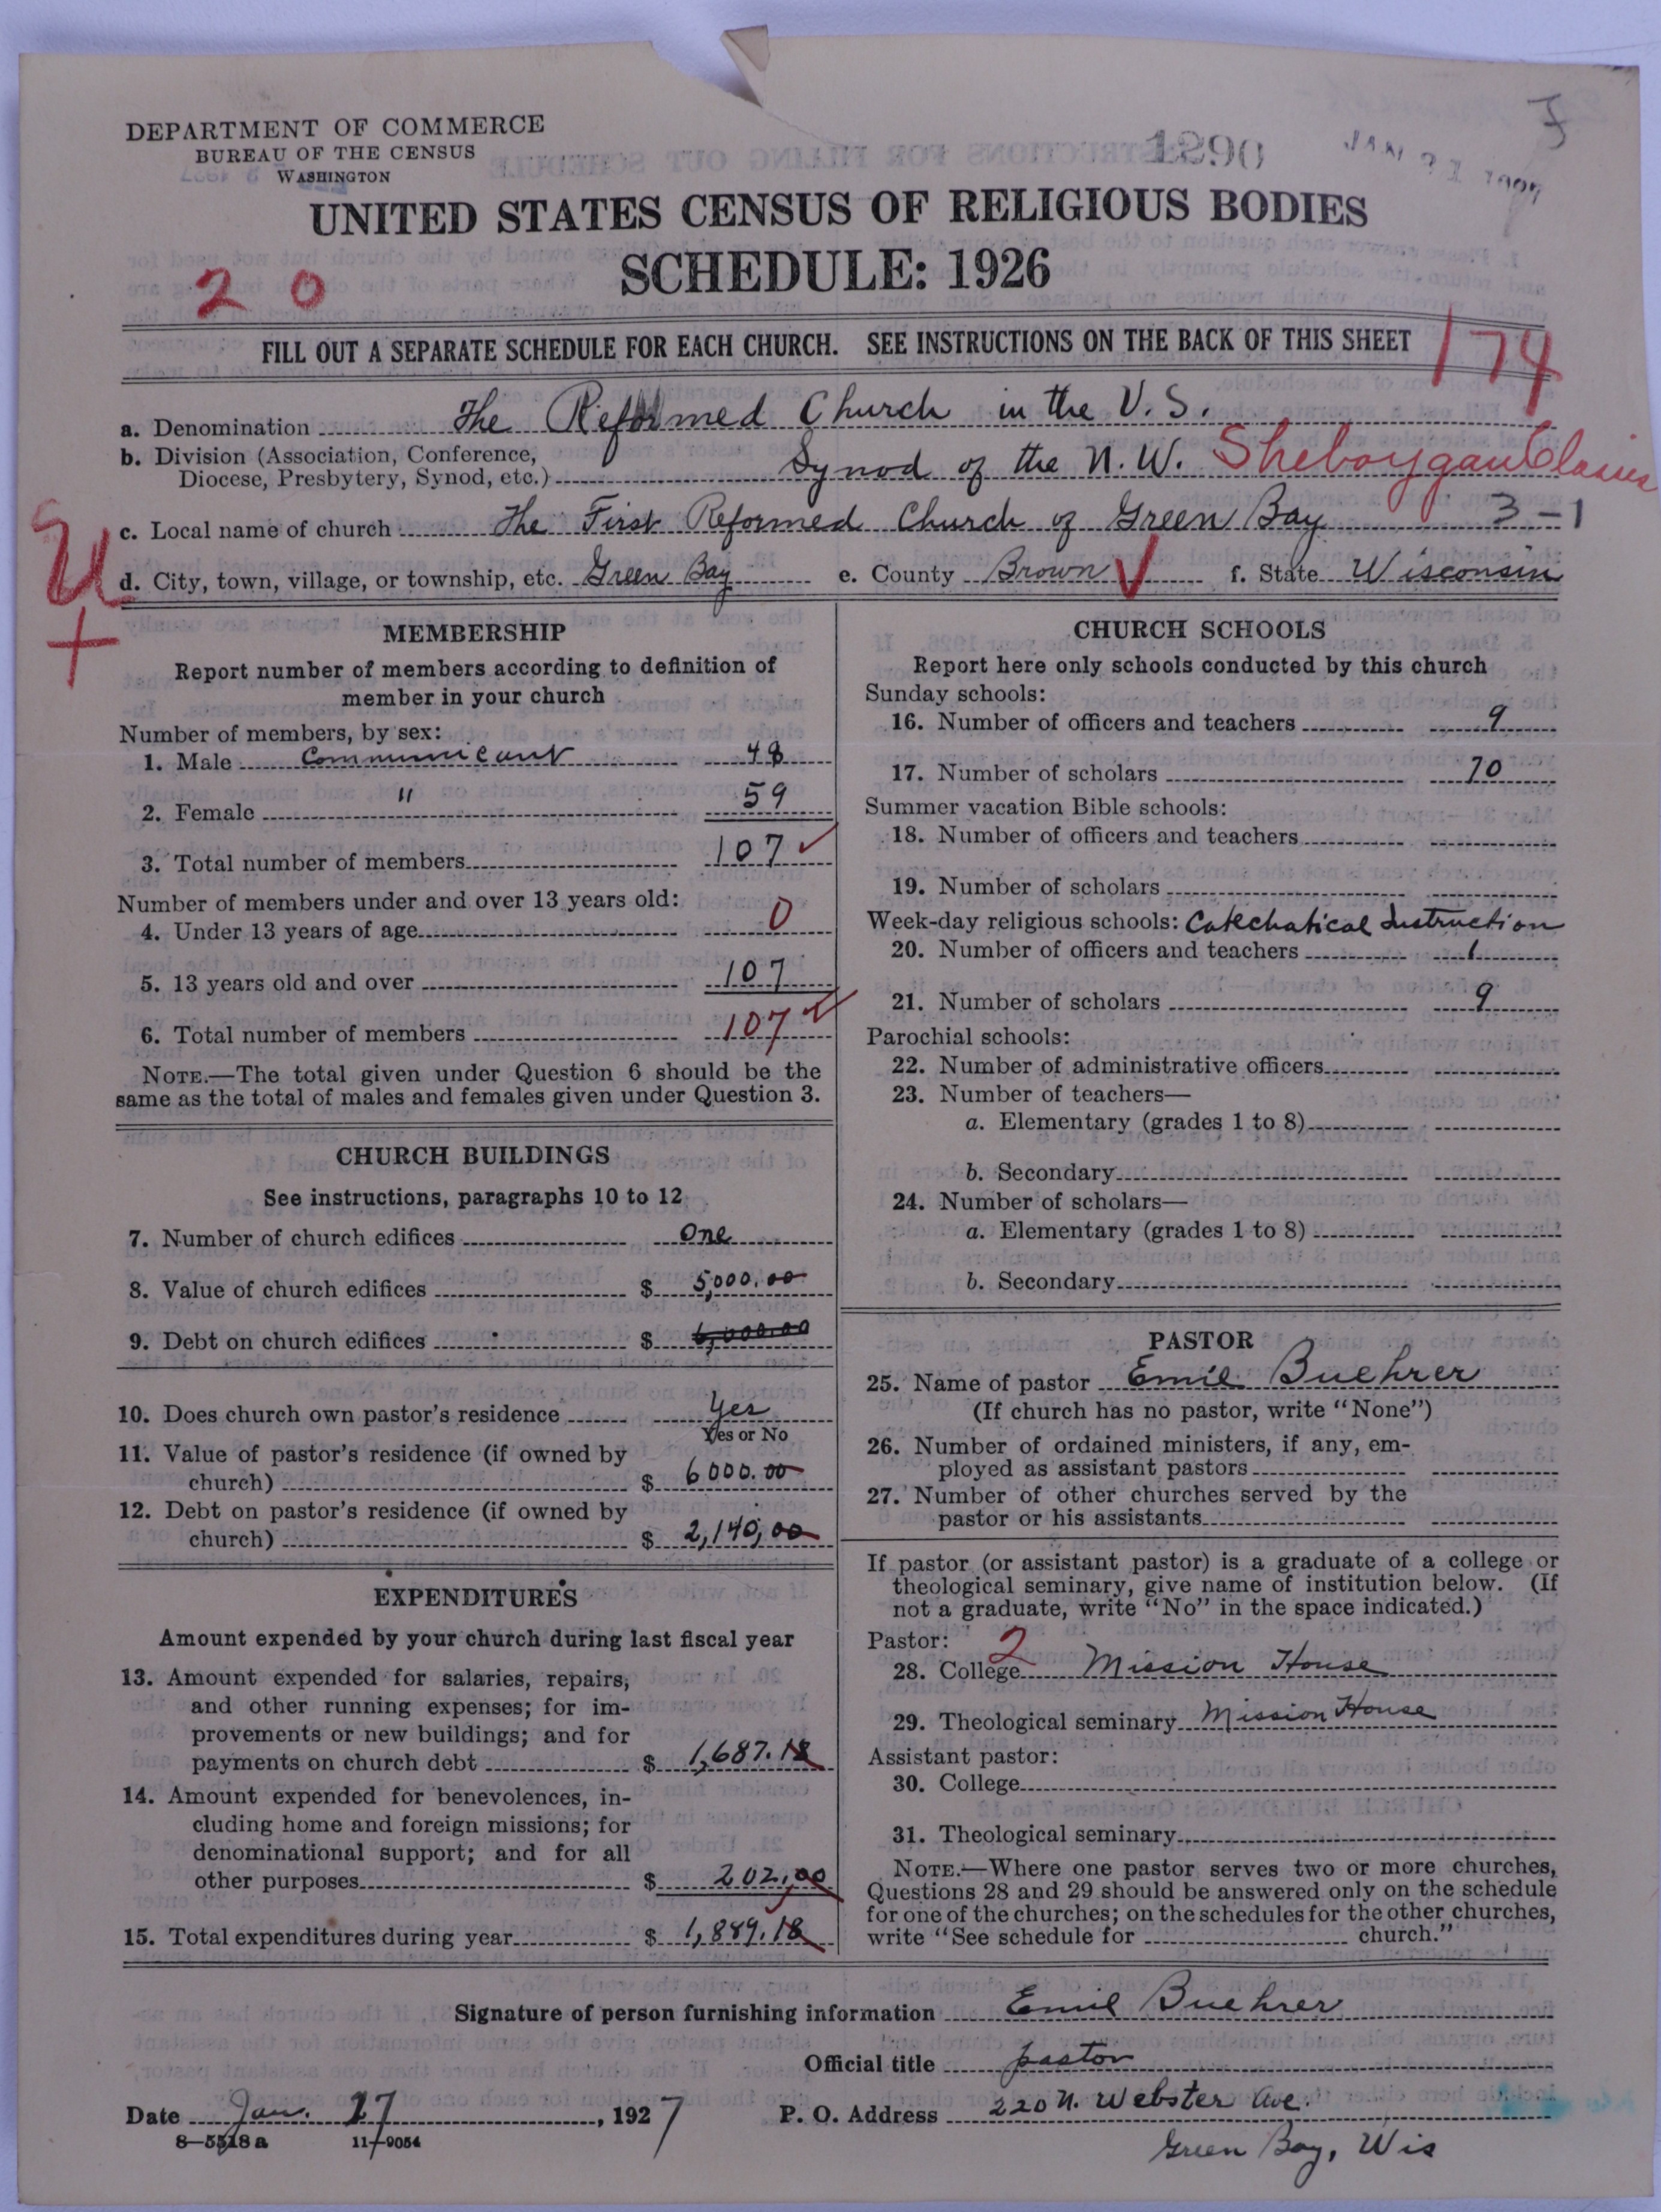 DEPARTMENT OF COMMERCE
BUREAU OF THE CENSUS
WASHINGTON
1890
F
UNITED STATES CENSUS OF RELIGIOUS BODIES
SCHEDULE: 1926
20
FILL OUT A SEPARATE SCHEDULE FOR EACH CHURCH. SEE INSTRUCTIONS ON THE BACK OF THIS SHEET
174
a. Denomination The Reformed Church in the U.S.
b. Division (Association, Conference,
Diocese, Presbytery, Synod, etc.) Synod of the N.W. Sheboygan Classis
c. Local name of church The First Reformed Church of Green Bay 3-1
d. City, town, village, or township, etc. Green Bay e. County Brown f. State Wisconsin
MEMBERSHIP
Report number of members according to definition of
member in your church
Number of members, by sex:
1. Male Communicant 48
2. Female " 59
3. Total number of members 107
Number of members under and over 13 years old:
4. Under 13 years of age 0
5. 13 years old and over 107
6. Total number of members 107
NOTE.—The total given under Question 6 should be the
same as the total of males and females given under Question 3.
CHURCH BUILDINGS
See instructions, paragraphs 10 to 12
7. Number of church edifices One
8. Value of church edifices $ 5,000.00
9. Debt on church edifices $ 6,000.00
10. Does church own pastor's residence Yes
Yes or No
11. Value of pastor's residence (if owned by
church) $ 6000.00
12. Debt on pastor's residence (if owned by
church) $ 2,140.00
EXPENDITURES
Amount expended by your church during last fiscal year
13. Amount expended for salaries, repairs,
and other running expenses; for im-
provements or new buildings; and for
payments on church debt $ 1,687.18
14. Amount expended for benevolences, in-
cluding home and foreign missions; for
denominational support; and for all
other purposes $ 202.00
15. Total expenditures during year $ 1,889.18
CHURCH SCHOOLS
Report here only schools conducted by this church
Sunday schools:
16. Number of officers and teachers 9
17. Number of scholars 70
Summer vacation Bible schools:
18. Number of officers and teachers
19. Number of scholars
Week-day religious schools: Catechatical Instruction
20. Number of officers and teachers 1
21. Number of scholars 9
Parochial schools:
22. Number of administrative officers
23. Number of teachers—
a. Elementary (grades 1 to 8)
b. Secondary
24. Number of scholars—
a. Elementary (grades 1 to 8)
b. Secondary
PASTOR
25. Name of pastor Emil Buehrer
(If church has no pastor, write "None")
26. Number of ordained ministers, if any, em-
ployed as assistant pastors
27. Number of other churches served by the
pastor or his assistants
If pastor (or assistant pastor) is a graduate of a college or
theological seminary, give name of institution below. (If
not a graduate, write "No" in the space indicated.)
Pastor: 2
28. College Mission House
29. Theological seminary Mission House
Assistant pastor:
30. College
31. Theological seminary
NOTE.—Where one pastor serves two or more churches,
Questions 28 and 29 should be answered only on the schedule
for one of the churches; on the schedules for the other churches,
write "See schedule for church."
Signature of person furnishing information Emil Buehrer
Official title pastor
Date Jan. 17, 1927 P. O. Address 220 N. Webster Ave.
8-5518a 11-9054
Green Bay, Wis